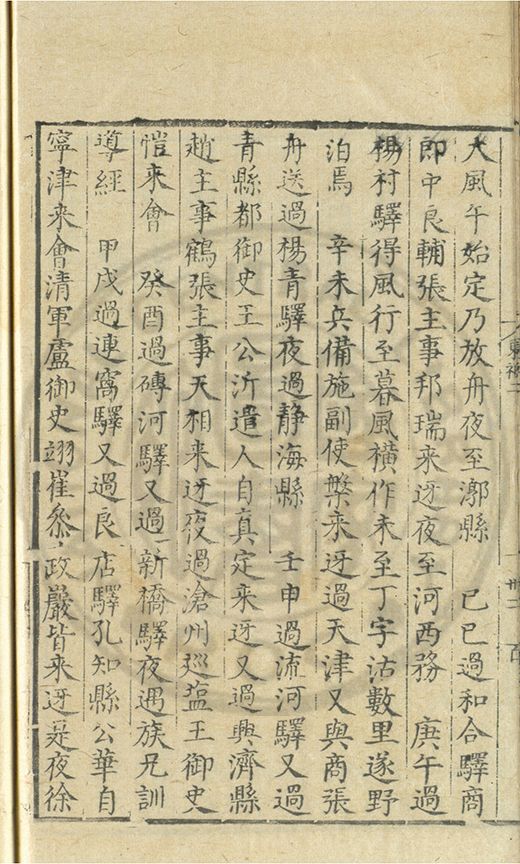 大風午始定乃放舟夜至漷縣　己巳過和合驛商
郎中良輔張主事邦瑞来迓夜至河西務　庚午過
楊村驛得風行至暮風横作未至丁字沽數里遂野
泊焉　辛未兵備施副使槃来迓過天津又與商張
舟送過楊青驛夜過静海縣　壬申過流河驛又過
青縣都御史王公沂遣人自真定来迓又過興濟縣
趙主事鶴張主事天相来迓夜過滄州巡塩王御史
愷来會　癸酉過磚河驛又過新橋驛夜遇族兄訓
導經　甲戌過連窩驛又過良店驛孔知縣公華自
寧津来會清軍盧御史翊崔叅政嚴皆来迓是夜徐